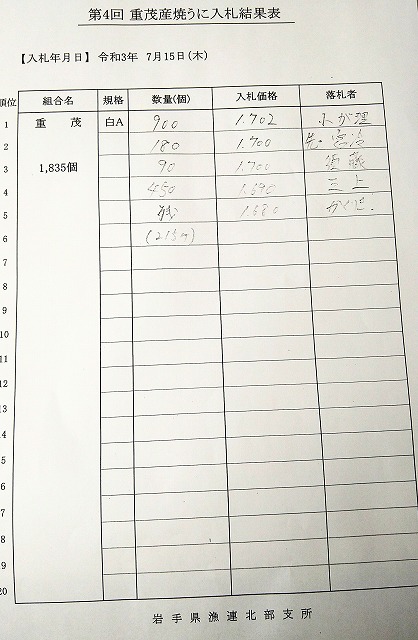 第4回 重茂産焼うに入札結果表
【入札年月日】 令和3年 7月15日(木)
順位 組合名 規格 数量(個) 入札価格 落札者
1 重 茂 白A 900 1.702
2 180 1.700
3 1,835個 90 1.700
4 450 1.690 三上
5 残 1.680
6 (215個)
7
8
9
10
11
12
13
14
15
16
17
18
19
20
岩手県漁連北部支所